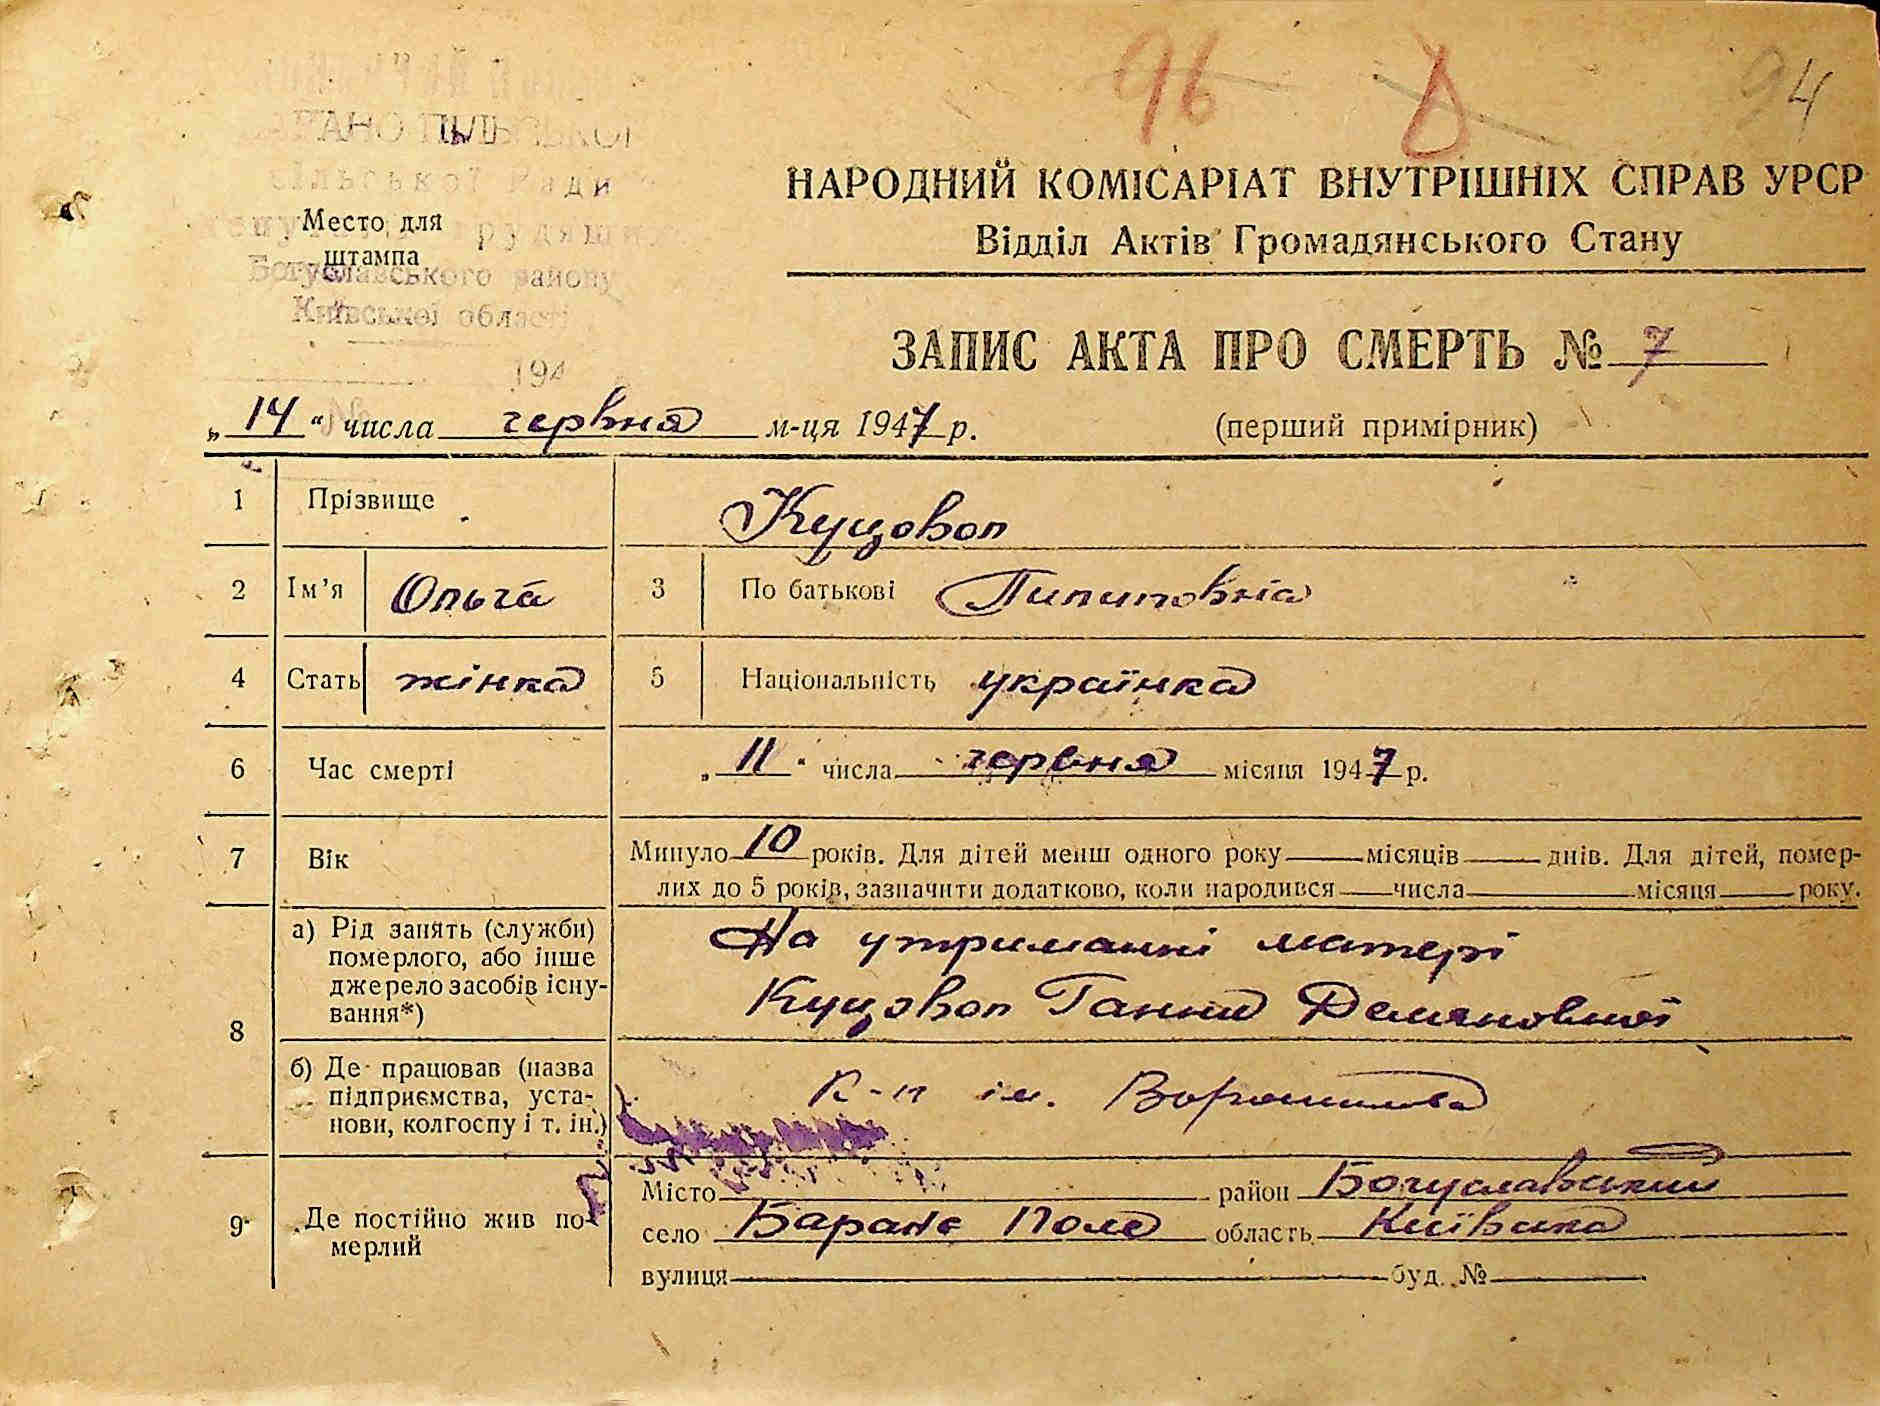 96 8 94
сільської Ради
Место для
штампа
Богуславського району
Київської області
194
№
НАРОДНИЙ КОМІСАРІАТ ВНУТРІШНІХ СПРАВ УРСР
Відділ Актів Громадянського Стану
ЗАПИС АКТА ПРО СМЕРТЬ № 7
„14“ числа червня м-ця 1947 р. (перший примірник)
1 Прізвище Куцовол
2 Ім’я Ольга 3 По батькові Пилиповна
4 Стать жінка 5 Національність українка
6 Час смерті „11“ числа червня місяця 1947 р.
7 Вік Минуло 10 років. Для дітей менш одного року місяців днів. Для дітей, помер-
лих до 5 років, зазначити додатково, коли народився числа місяця року.
8 а) Рід занять (служби)
померлого, або інше
джерело засобів існу-
вання*)
На утриманні матері
Куцовол Ганни Демяновної
б) Де працював (назва
підприємства, уста-
нови, колгоспу і т. ін.)
К-п ім. Ворошилова
9 Де постійно жив по-
мерлий
Місто район Богуславський
село Баране Поле область Київська
вулиця буд. №